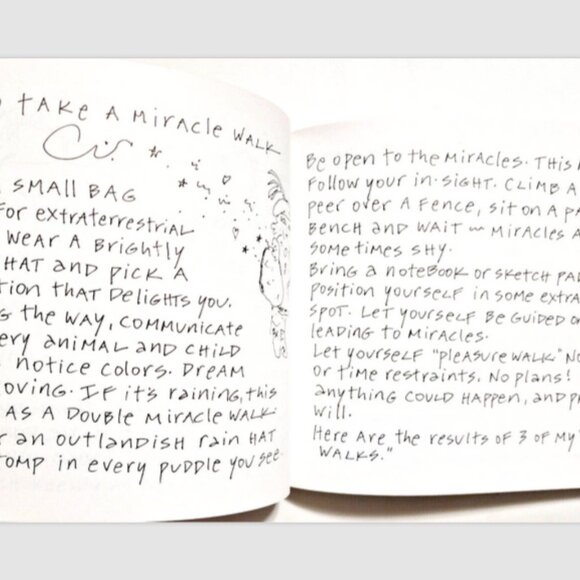 TAKE A MIRACLE WALK
SMALL BAG
FOR EXTRATERRESTRIAL
WEAR A BRIGHTLY
HAT AND PICK A
TION THAT DELIGHTS YOU.
THE WAY, COMMUNICATE
ERY ANIMAL AND CHILD
NOTICE COLORS. DREAM
OVING. IF IT'S RAINING, THIS
AS A DOUBLE MIRACLE WALK.
AN OUTLANDISH RAIN HAT
TOMP IN EVERY PUDDLE YOU SEE.
BE OPEN TO THE MIRACLES. THIS
FOLLOW YOUR IN-SIGHT. CLIMB A
PEER OVER A FENCE, SIT ON A PA
BENCH AND WAIT ~ MIRACLES A
SOMETIMES SHY.
BRING A NOTEBOOK OR SKETCH PAD
POSITION YOURSELF IN SOME EXTRA
SPOT. LET YOURSELF BE GUIDED
LEADING TO MIRACLES.
LET YOURSELF "PLEASURE WALK." NO
OR TIME RESTRAINTS. NO PLANS!
ANYTHING COULD HAPPEN, AND PR
WILL.
HERE ARE THE RESULTS OF 3 OF MY "
WALKS."